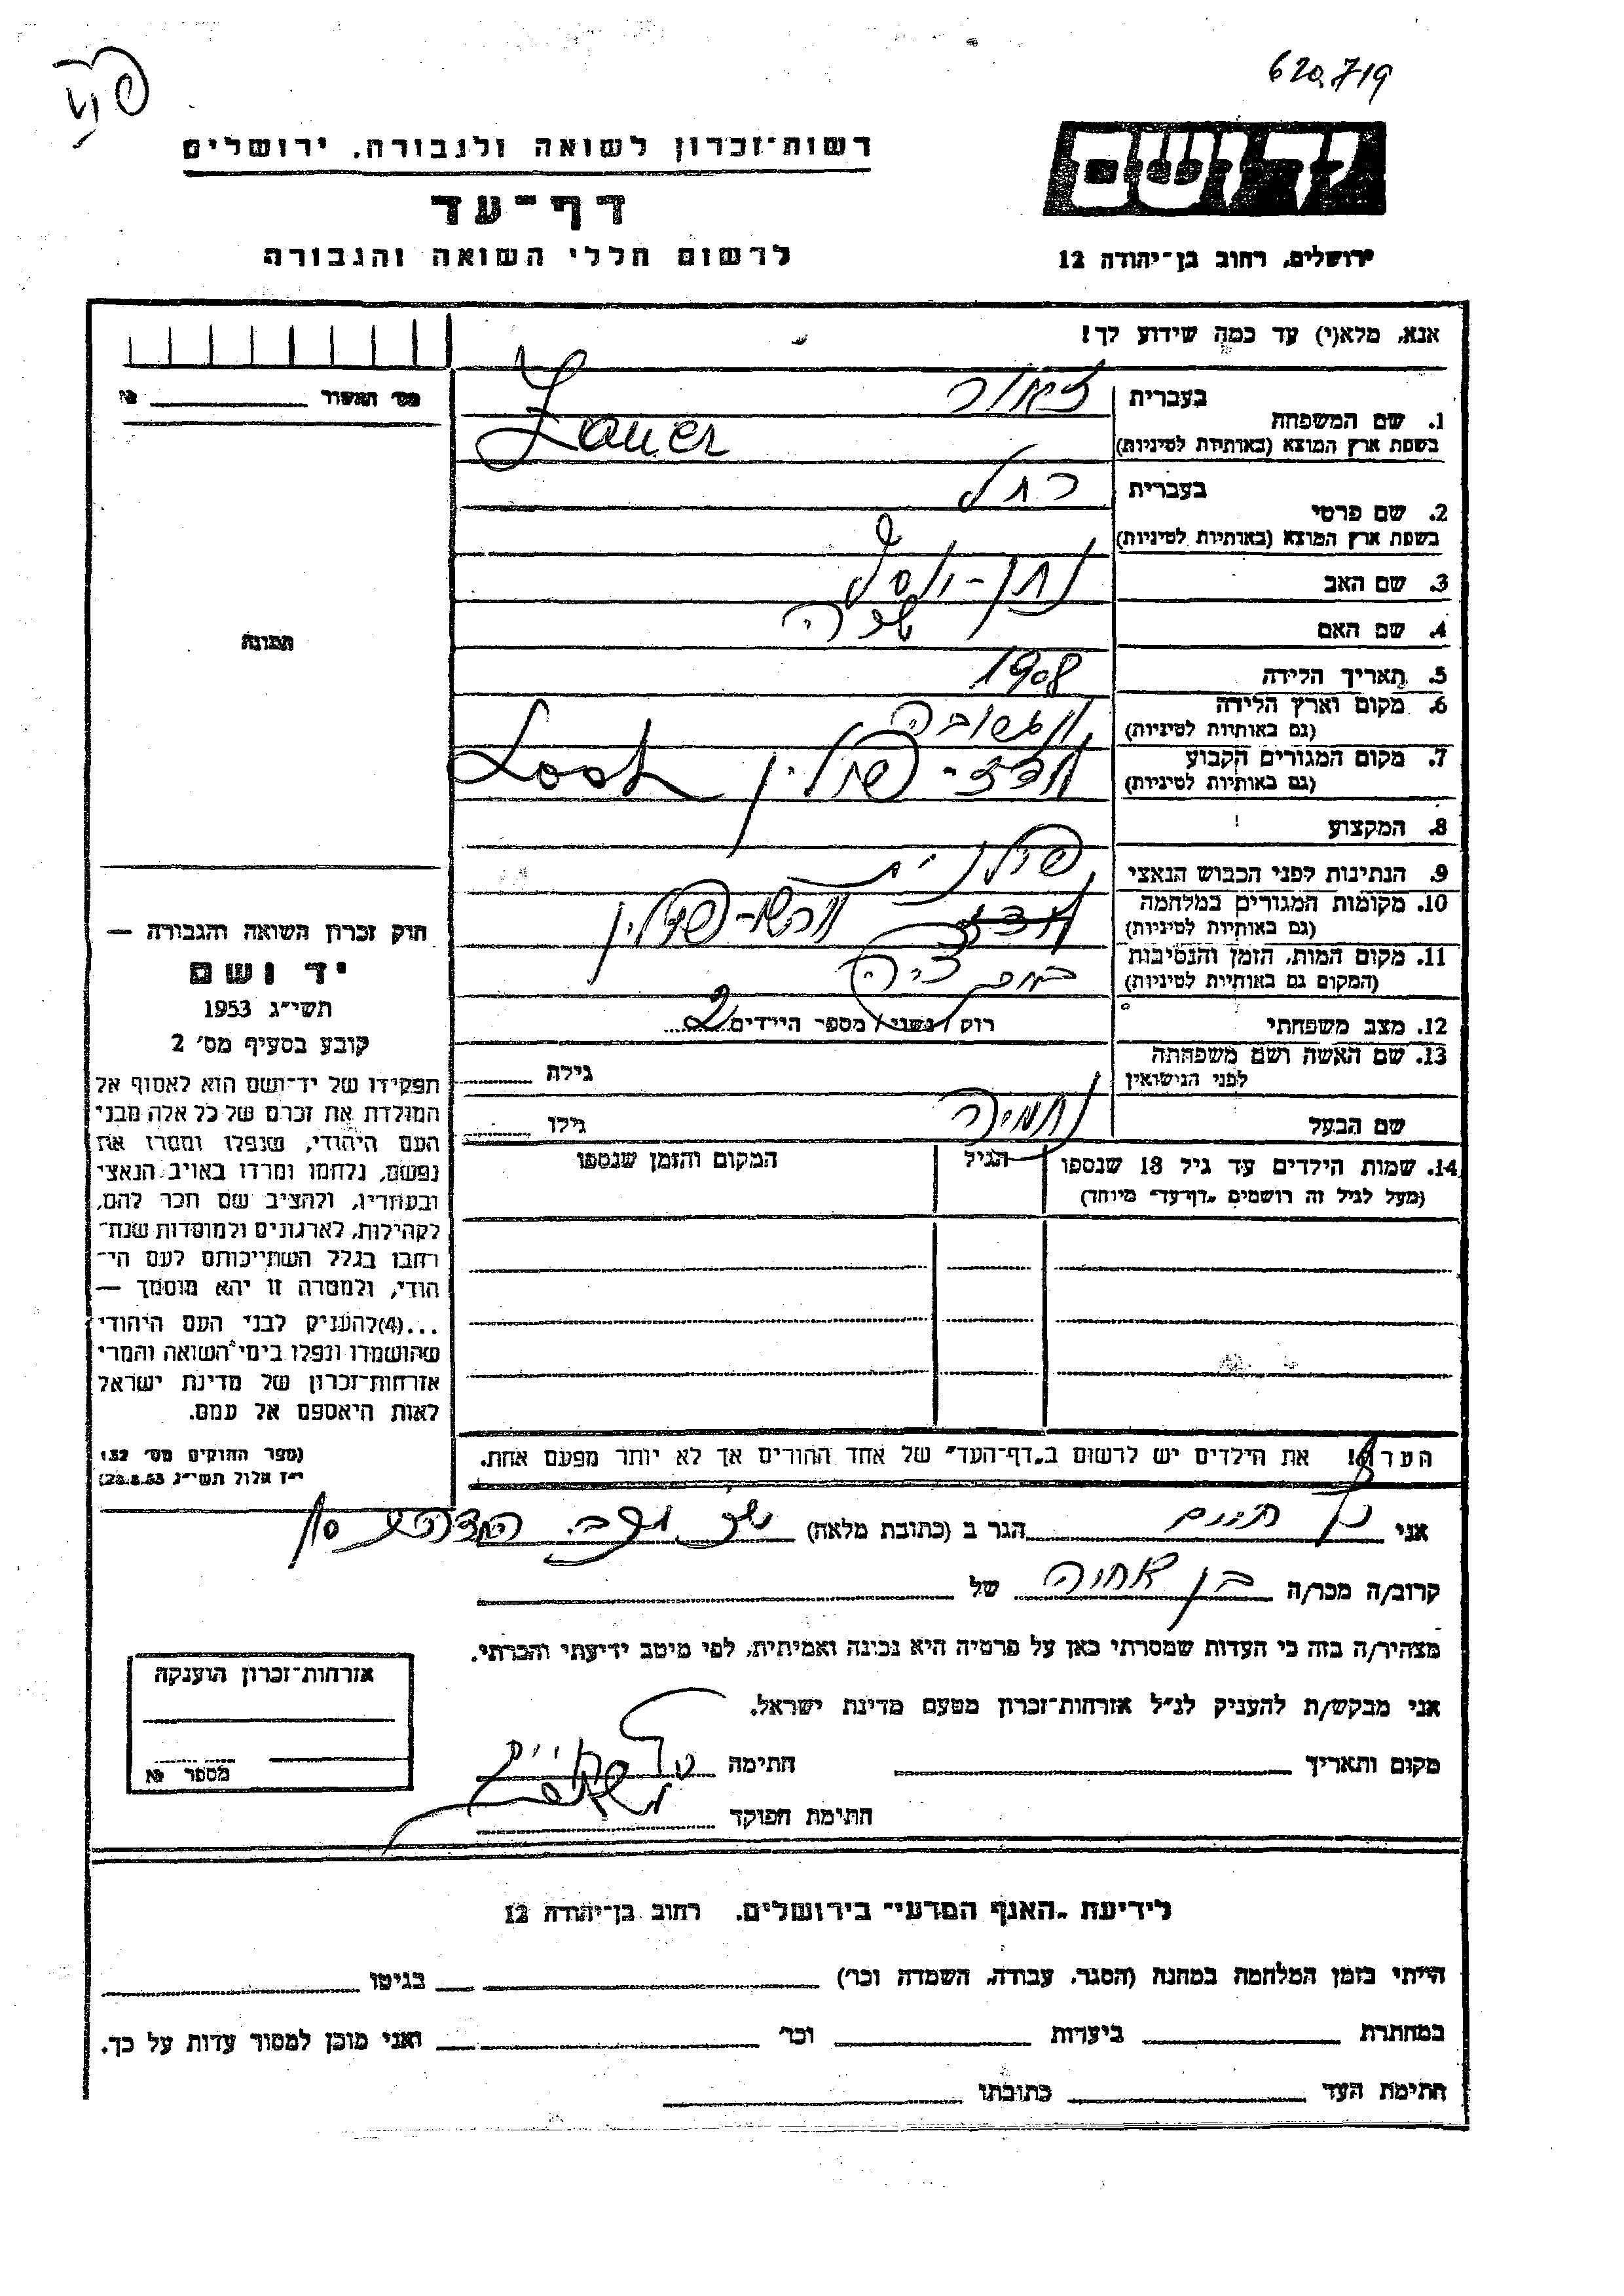 620,719
רשות־זכרון לשואה ולגבורה, ירושלים
ידושם
דף־עד
לרשום חללי השואה והגבורה
ירושלים, רחוב בן־יהודה 12
אנא, מלא(י) עד כמה שידוע לך!
מס' האשור №
1. שם המשפחה
בעברית
בשפת ארץ המוצא (באותיות לטיניות)
Zauer
2. שם פרטי
בעברית רחל
בשפת ארץ המוצא (באותיות לטיניות)
3. שם האב נתן-יוסף
4. שם האם שרה
5. תאריך הלידה 1908
6. מקום וארץ הלידה
(גם באותיות לטיניות)
7. מקום המגורים הקבוע לודז'-פולין
(גם באותיות לטיניות)
8. המקצוע
9. הנתינות לפני הכבוש הנאצי פולנית
10. מקומות המגורים במלחמה ורשה-פולין
(גם באותיות לטיניות)
11. מקום המות, הזמן והנסיבות
(המקום גם באותיות לטיניות)
12. מצב משפחתי רוק / נשוי / מספר הילדים 2
13. שם האשה ושם משפחתה
לפני הנישואין
גילה
שם הבעל נחמיה גילו
14. שמות הילדים עד גיל 18 שנספו
(מעל לגיל זה רושמים „דף־עד" מיוחד)
הגיל
המקום והזמן שנספו
הערה! את הילדים יש לרשום ב„דף־העד" של אחד ההורים אך לא יותר מפעם אחת.
תמונה
חוק זכרון השואה והגבורה —
יד ושם
תשי"ג 1953
קובע בסעיף מס' 2
תפקידו של יד־ושם הוא לאסוף אל
המולדת את זכרם של כל אלה מבני
העם היהודי, שנפלו ומסרו את
נפשם, נלחמו ומרדו באויב הנאצי
ובעוזריו, ולהציב שם וזכר להם,
לקהילות, לארגונים ולמוסדות שנח־
רחבו בגלל השתייכותם לעם הי־
הודי, ולמטרה זו יהא מוסמך —
...(4) להעניק לבני העם היהודי
שהושמדו ונפלו בימי השואה והמרי
אזרחות־זכרון של מדינת ישראל
לאות היאספם אל עמם.
(ספר החוקים מס' 132
י"ז אלול תשי"ג 28.8.53)
אני הגר ב (כתובת מלאה)
קרוב/ה מכר/ה בן אחיה של
מצהיר/ה בזה כי העדות שמסרתי כאן על פרטיה היא נכונה ואמיתית, לפי מיטב ידיעתי והכרתי.
אני מבקש/ת להעניק לנ"ל אזרחות־זכרון מטעם מדינת ישראל.
מקום ותאריך חתימה
חתימת הפוקד
אזרחות־זכרון הוענקה
מספר №
לידיעת „האגף המדעי" בירושלים, רחוב בן־יהודה 12
הייתי בזמן המלחמה במחנה (הסגר, עבודה, השמדה וכו') בגיטו
במחתרת ביערות וכו' ואני מוכן למסור עדות על כך.
חתימת העד כתובתו